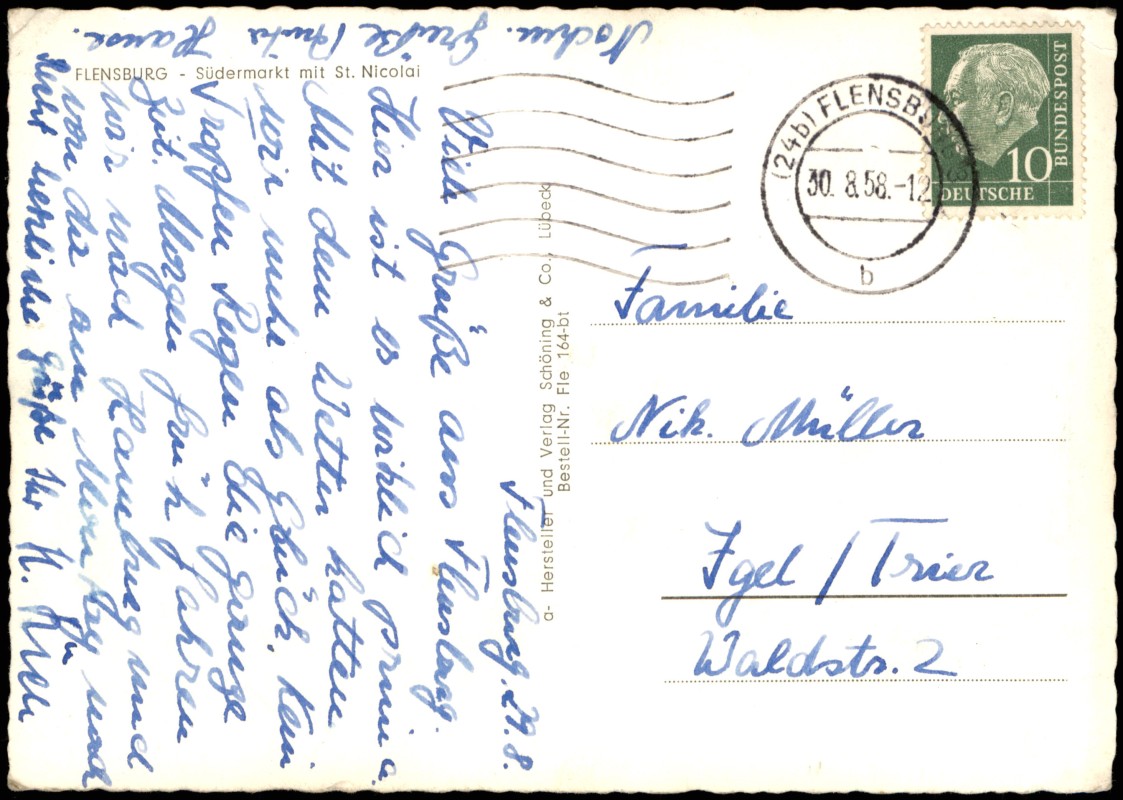 FLENSBURG - Südermarkt mit St. Nicolai
Flensburg. 29. 8.
Viele Grüße aus Flensburg.
Hier ist es wirklich prima.
Mit dem Wetter hatten
wir mehr als Glück. Kein
Tropfen Regen die ganze
Zeit. Morgen früh fahren
wir nach Hamburg und
von da am Montag nach
Hause.
Nochm. Grüße Anita
Recht herzliche Grüße Ihr H.
a- Hersteller und Verlag Schöning & Co., Lübeck
Bestell-Nr. Fle 164-bt
(24b) FLENSBURG
30. 8.58.-12
b
10
DEUTSCHE
BUNDESPOST
Familie
Nik. Müller
Igel / Trier
Waldstr. 2